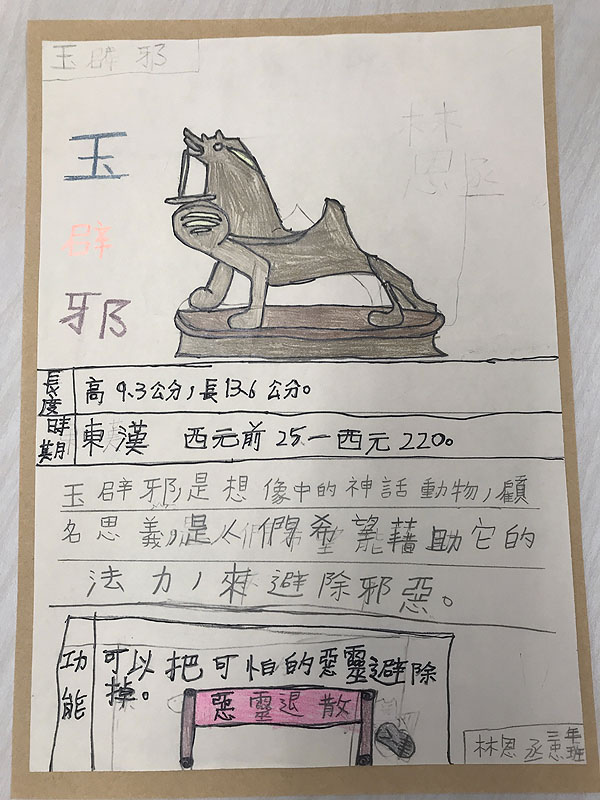 玉辟邪
林恩丞
玉
辟
邪
長度 高9.3公分，長13.6公分。
時期 東漢 西元前25—西元220。
玉辟邪，是想像中的神話動物，顧
名思義，是人們希望藉助它的
法力，來避除邪惡。
功能 可以把可怕的惡靈避除
掉。
惡靈退散
林恩丞 三年惠班